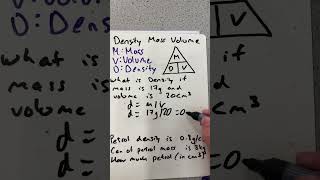 Density Mass Volume
M: Mass
V: Volume
D: Density
M
D V
what is Density if
mass is 17g and
volume is 20cm³
d = m/v
d = 17g/20 = 0
Petrol density is 0.8g/c
Can of petrol mass is 3kg
How much petrol (in cm³)